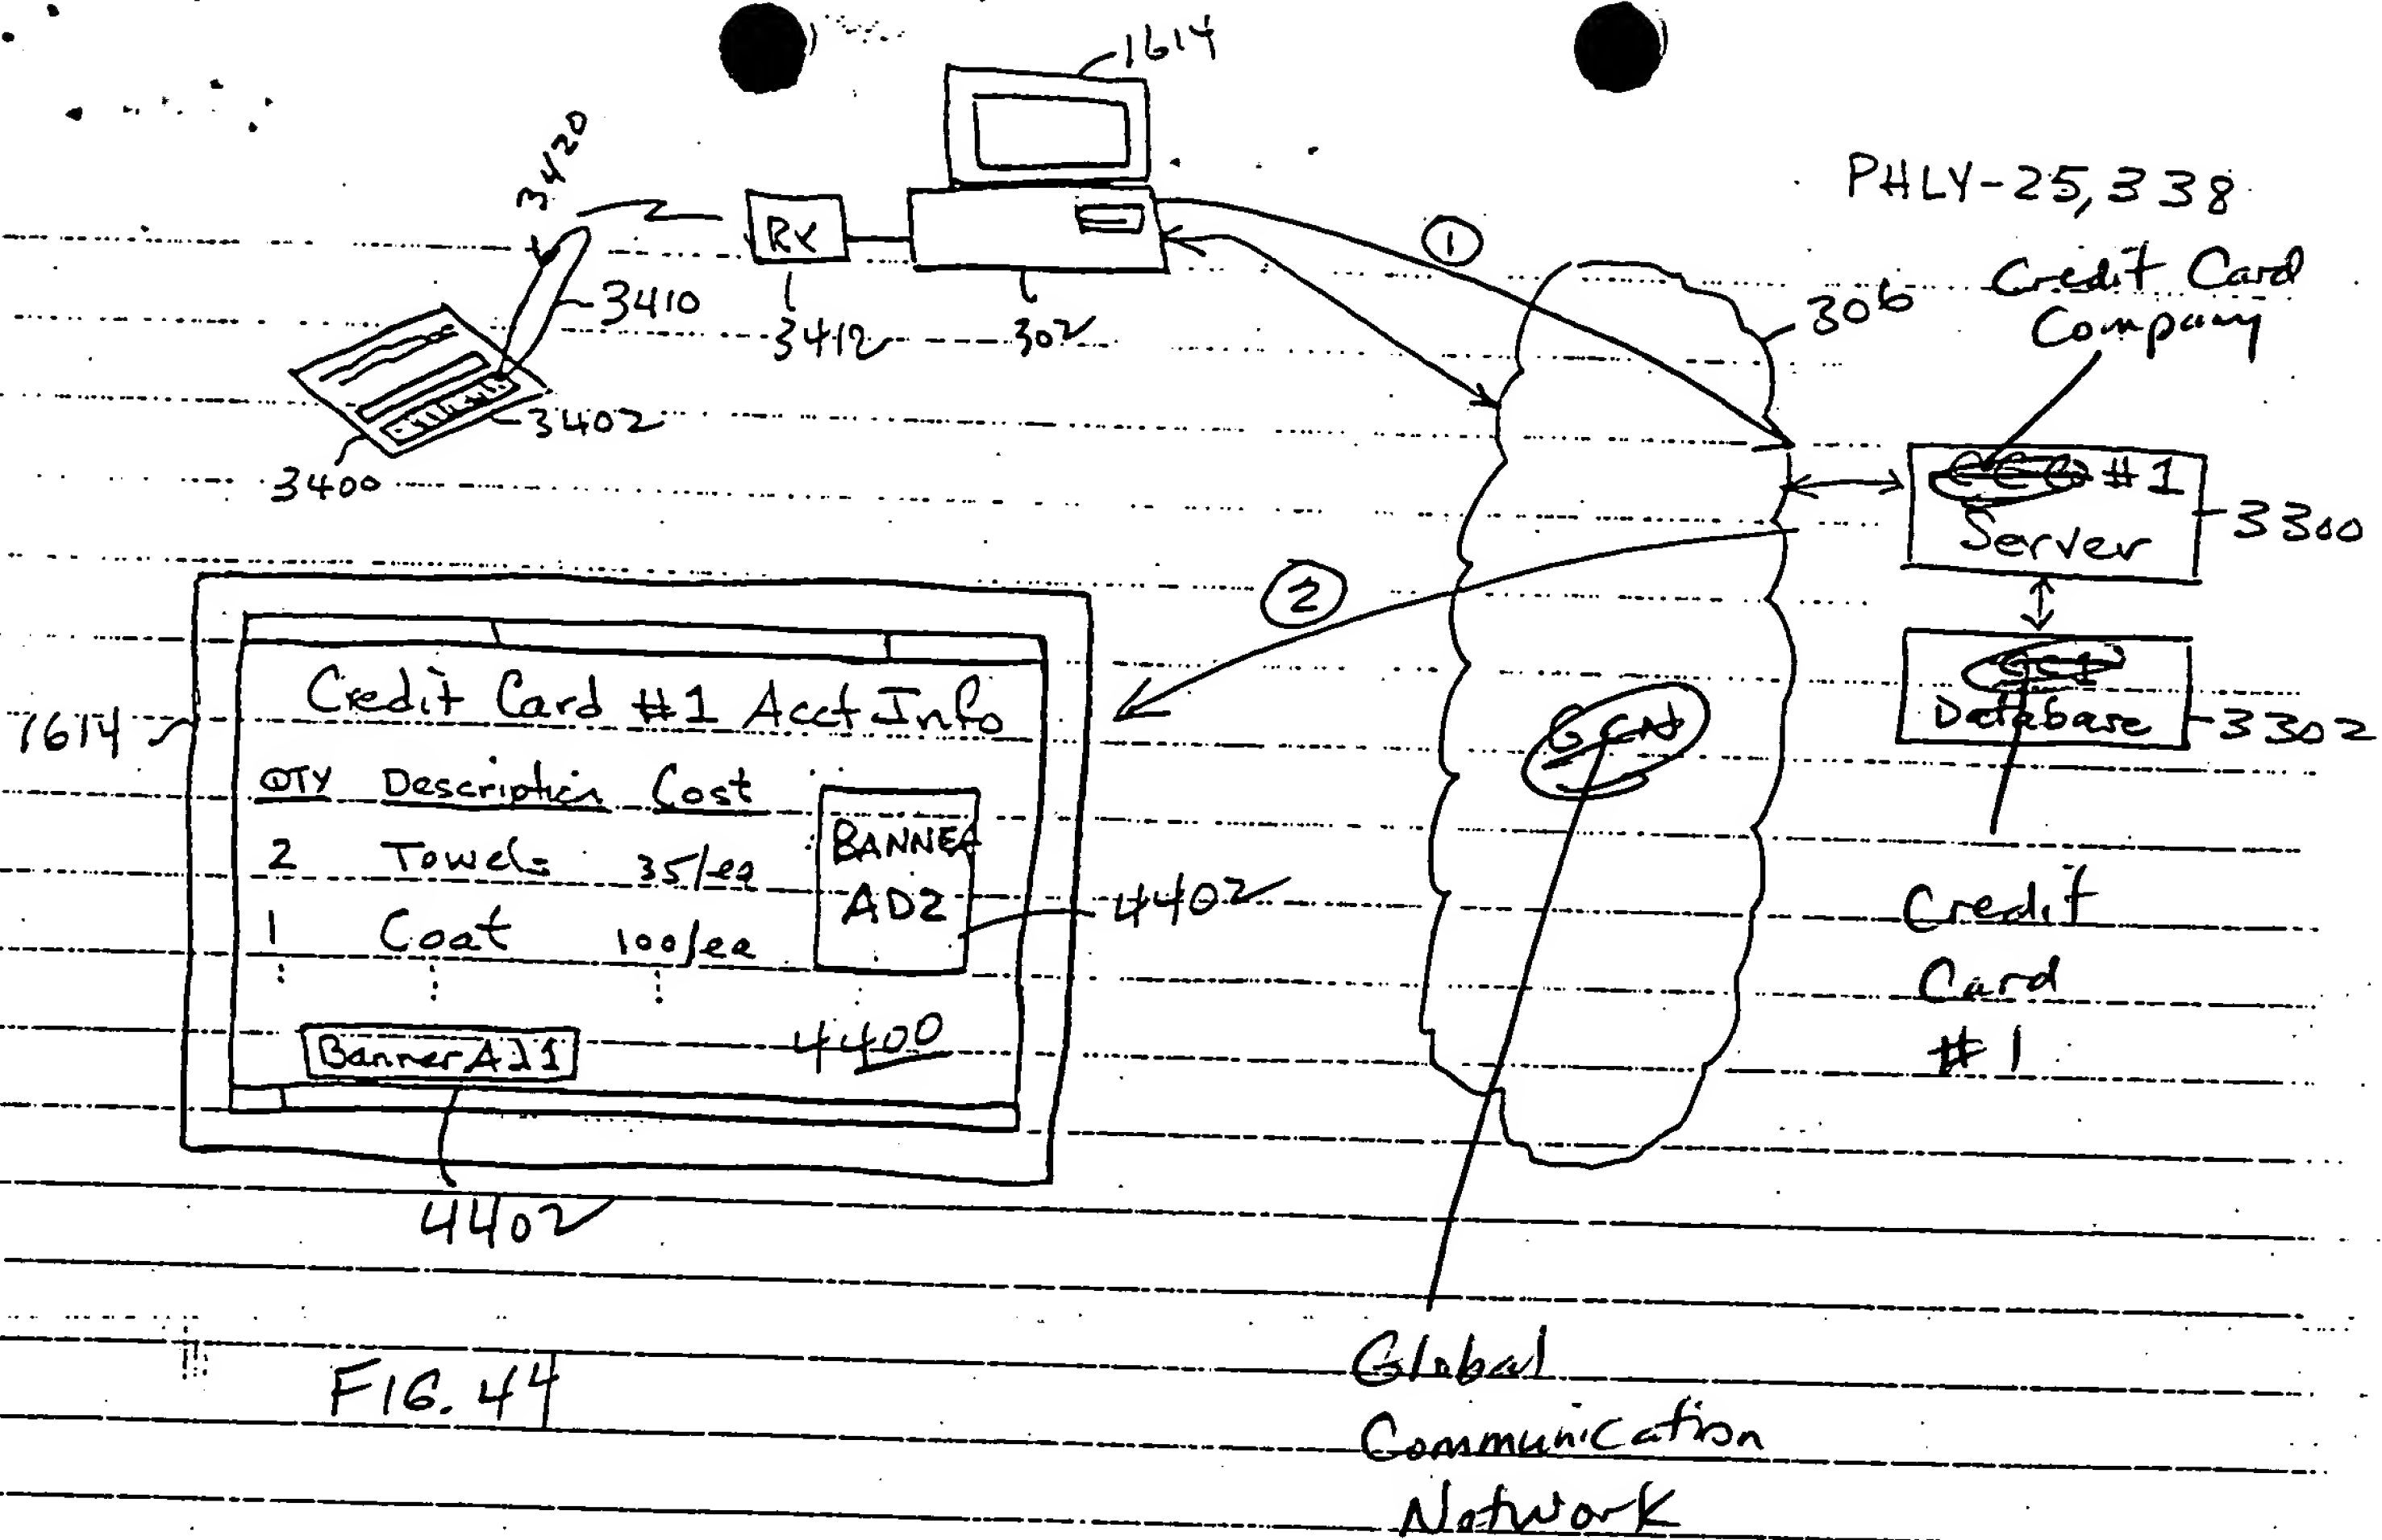 1614
3420
PHLY-25,338
RX
1
3410
3412
302
306
Credit Card
Company
3402
3400
#1
Server
3300
2
Database
3302
1614
Credit Card #1 Acct Info
QTY Description Cost
2 Towels 35/ea
1 Coat 100/ea
BANNER
AD2
4402
GCN
Credit
Card
#1
Banner Ad1
4400
4402
Global
Communication
Network
FIG. 44